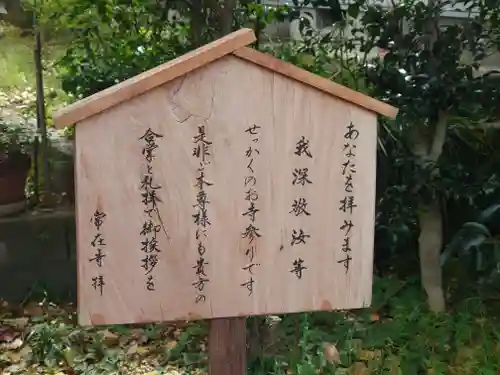 あなたを拝みます
我深敬汝等
せっかくのお寺参りです
是非ご本尊様にも貴方の
合掌と礼拝で御挨拶を
常在寺 拝